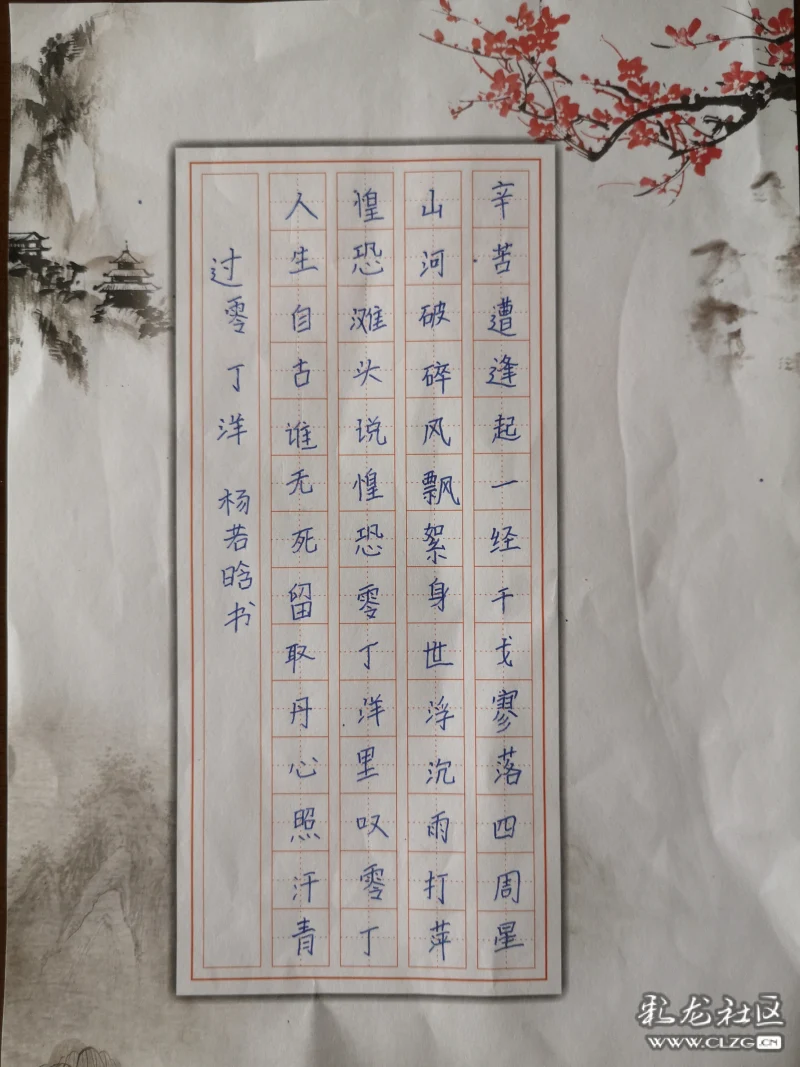 辛苦遭逢起一经干戈寥落四周星
山河破碎风飘絮身世浮沉雨打萍
惶恐滩头说惶恐零丁洋里叹零丁
人生自古谁无死留取丹心照汗青
过零丁洋 杨若晗书
彩龙社区
WWW.CLZG.CN